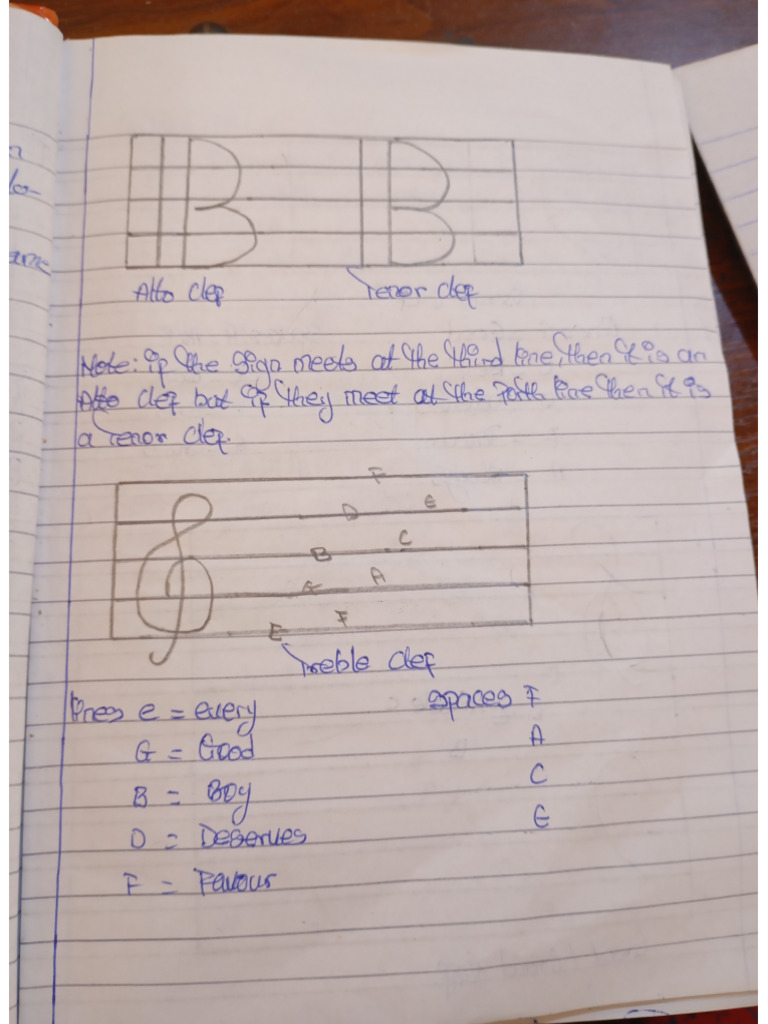 Alto clef
Tenor clef
Note: if the sign meets at the third line, then it is an
Alto clef but if they meet at the forth line then it is
a Tenor clef.
F
D E
B C
G A
E F
Treble clef
lines e = every
spaces F
G = Good
A
B = Boy
C
D = Deserves
E
F = Favour